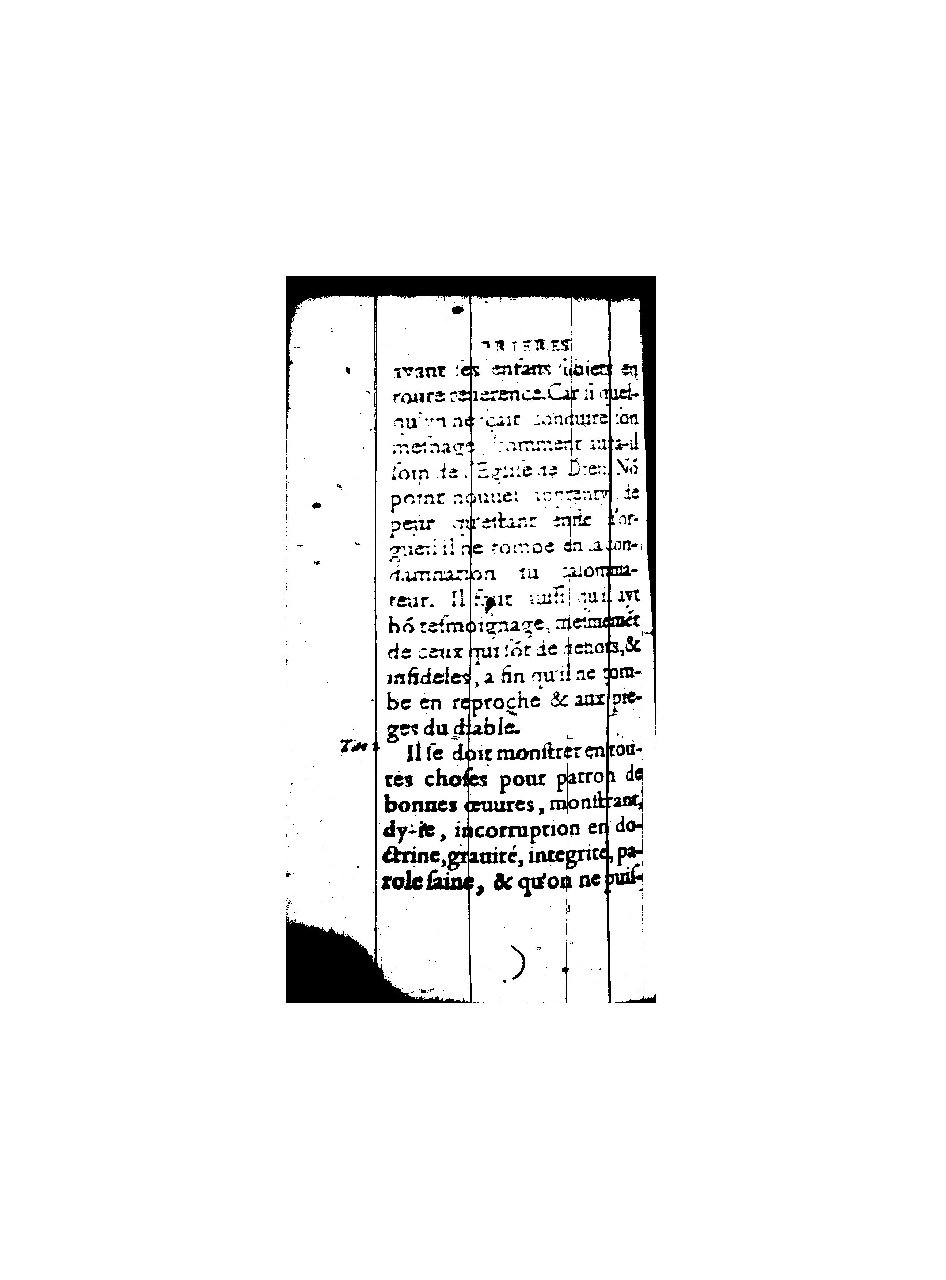 PRIERES
ayant ses enfans subiets en
toute reuerence. Car si quel-
qu'vn ne sçait conduire son
mesnage, comment aura-il
soin de l'Eglise de Dieu. Nõ
point nouuel de
peur qu'estant enflé d'or-
gueil il ne tombe en la con-
damnation du calomnia-
teur. Il faut aussi qu'il ayt
bõ tesmoignage, mesmemẽt
de ceux qui sõt de dehors, &
infideles, a fin qu'il ne tom-
be en reproche & aux pie-
ges du diable.
Tite 2
Il se doit monstrer en tou-
tes choses pour patron de
bonnes œuures, monstrant,
dy-ie, incorruption en do-
ctrine, grauité, integrité, pa-
role saine, & qu'on ne puis-